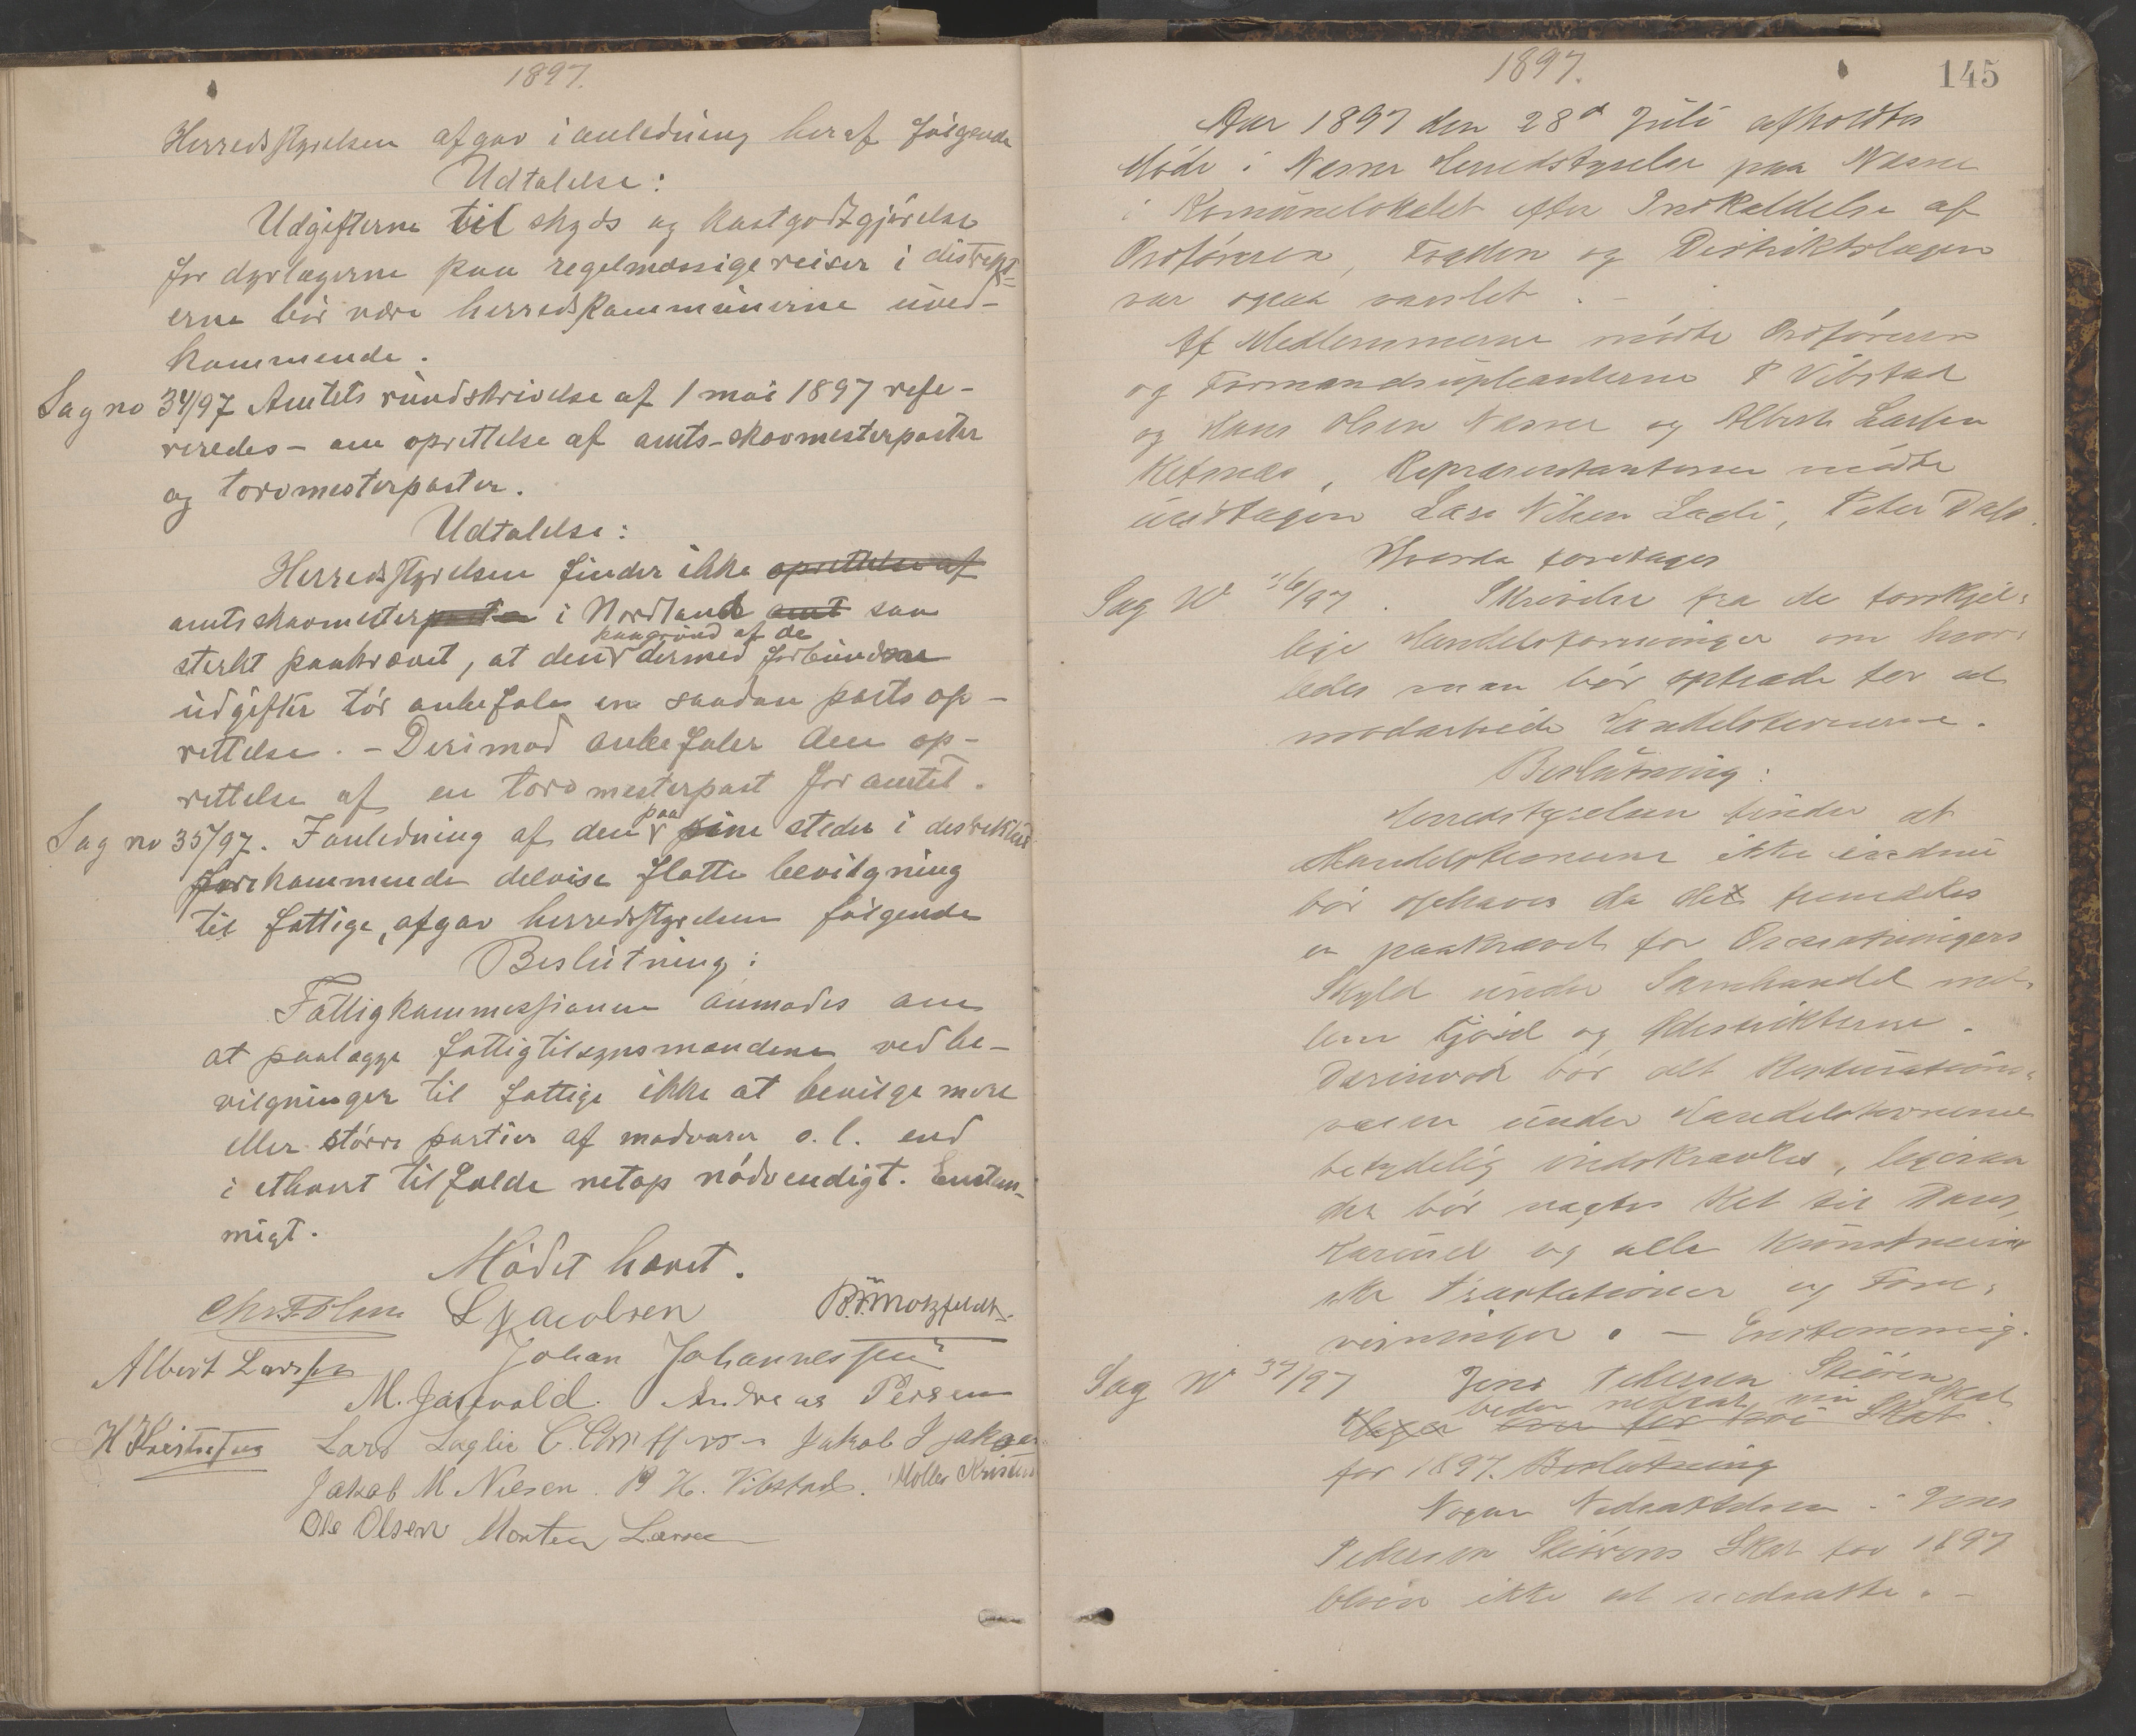 1897.
Herredsstyrelsen afgav i anledning heraf følgende
Udtalelse:
Udgifterne til skyds og kostgodtgjørelse
for dyrlægerne paa regelmæssige reiser i distrikt-
erne bør være herredskommunerne uved-
kommende.
Sag no 34/97 Amtets rundskrivelse af 1 mai 1897 refe-
reredes - om oprettelse af amts-skovmesterposter
og torvmesterposter.
Udtalelse:
Herredsstyrelsen finder ikke oprettelse af
amtsskovmesterposter i Nordland amt saa
sterkt paakrævet, at den paagrund af de dermed forbundne
udgifter tør anbefale en saadan posts op-
rettelse. - Derimod anbefaler den op-
rettelse af en torvmesterpost for amtet.
Sag no 35/97. I anledning af den paa sine steder i distriktet
forekommende delvise flotte bevilgning
til fattige, afgav herredsstyrelsen følgende
Beslutning:
Fattigkommissionen anmodes om
at paalægge fattigtilsynsmændene ved be-
vilgninger til fattige ikke at bevilge mere
eller større partier af madvarer o. l. end
i ethvert tilfælde netop nødvendigt. Enstem-
migt.
Mødet hævet.
Chr. F. Olsen L Jacobsen P. F. Motzfeldt
Albert Larssen Johan Johannessen
M. Jastvold. Andreas Persen
H Kristensen Lars Laglie Jakob J Jakobsen
Jakob M Nilsen. P H. Vibstad. Møller Kristensen
Ole Olsen Morten Larsen
1897.
145
Aar 1897 den 28d Juli afholdtes
Møde i Nesne Herredstyrelse paa Nesne
i Komunelokalet efter Indkaldelse af
Ordføreren, Fogden og Distriktslægen
var ogsaa varslet. -
Af Medlemmerne mødte Ordføreren
og Formandsupleanterne P Vibstad
og Hans Olsen Nesne og Albert Larsen
, Repræsentanterne mødte
undtagen Lars Nilsen Laglie, Peter Dahl.
Hvorda foretages
Sag No 36/97. Skrivelse fra de forskjel-
lige Handelsforeninger om hvor-
ledes man bør optræde for at
modarbeide Handelsstevnerne.
Beslutning:
Herredstyrelsen finder at
Handelsstevnerne ikke endnu
bør ophæves da det fremdeles
er paakrævet for Omsætningens
Skyld under Samhandel mel-
lem Fjord og Ødistrikterne.
Derimod bør alt Restaurations-
væsen under Handelsstevnerne
betydelig indskrænkes, ligesaa
der bør nægtes Ret til Dans,
Karusel og alle Kunstneri-
ske Præstationer og Fore-
visninger. - Enstemmig.
Sag No 37/97 Jens Pedersen Skaaren
beder nedsat sin Skat
for 1897. Beslutning
Nogen Nedsættelse i Jens
Pedersen Skaarens Skat for 1897
blev ikke at nedsætte. -